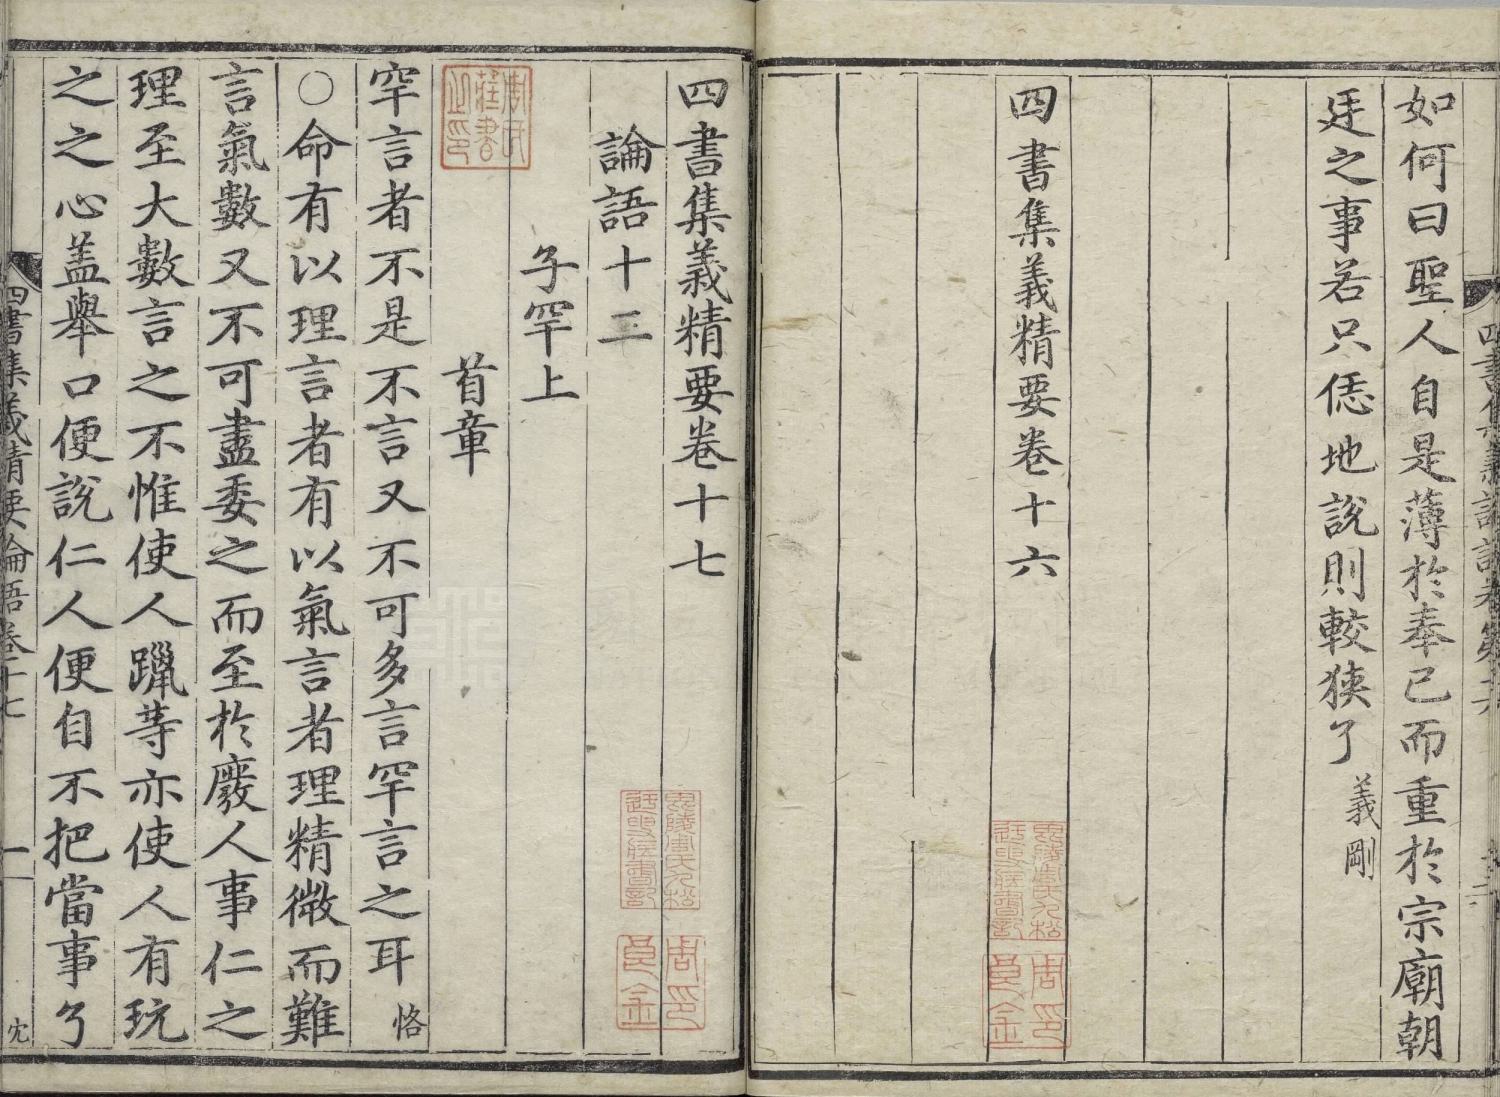 如何曰聖人自是薄於奉己而重於宗廟朝
廷之事若只恁地說則較狹了義剛
四書集義精要卷十六
四書集義精要卷十七
論語十三
子罕上
首章
罕言者不是不言又不可多言罕言之耳恪
○命有以理言者有以氣言者理精微而難
言氣數又不可盡委之而至於廢人事仁之
理至大數言之不惟使人躐等亦使人有玩
之之心盖舉口便說仁人便自不把當事了
四書集義精要論語卷十七
一
周氏藏書之印
周印
良金